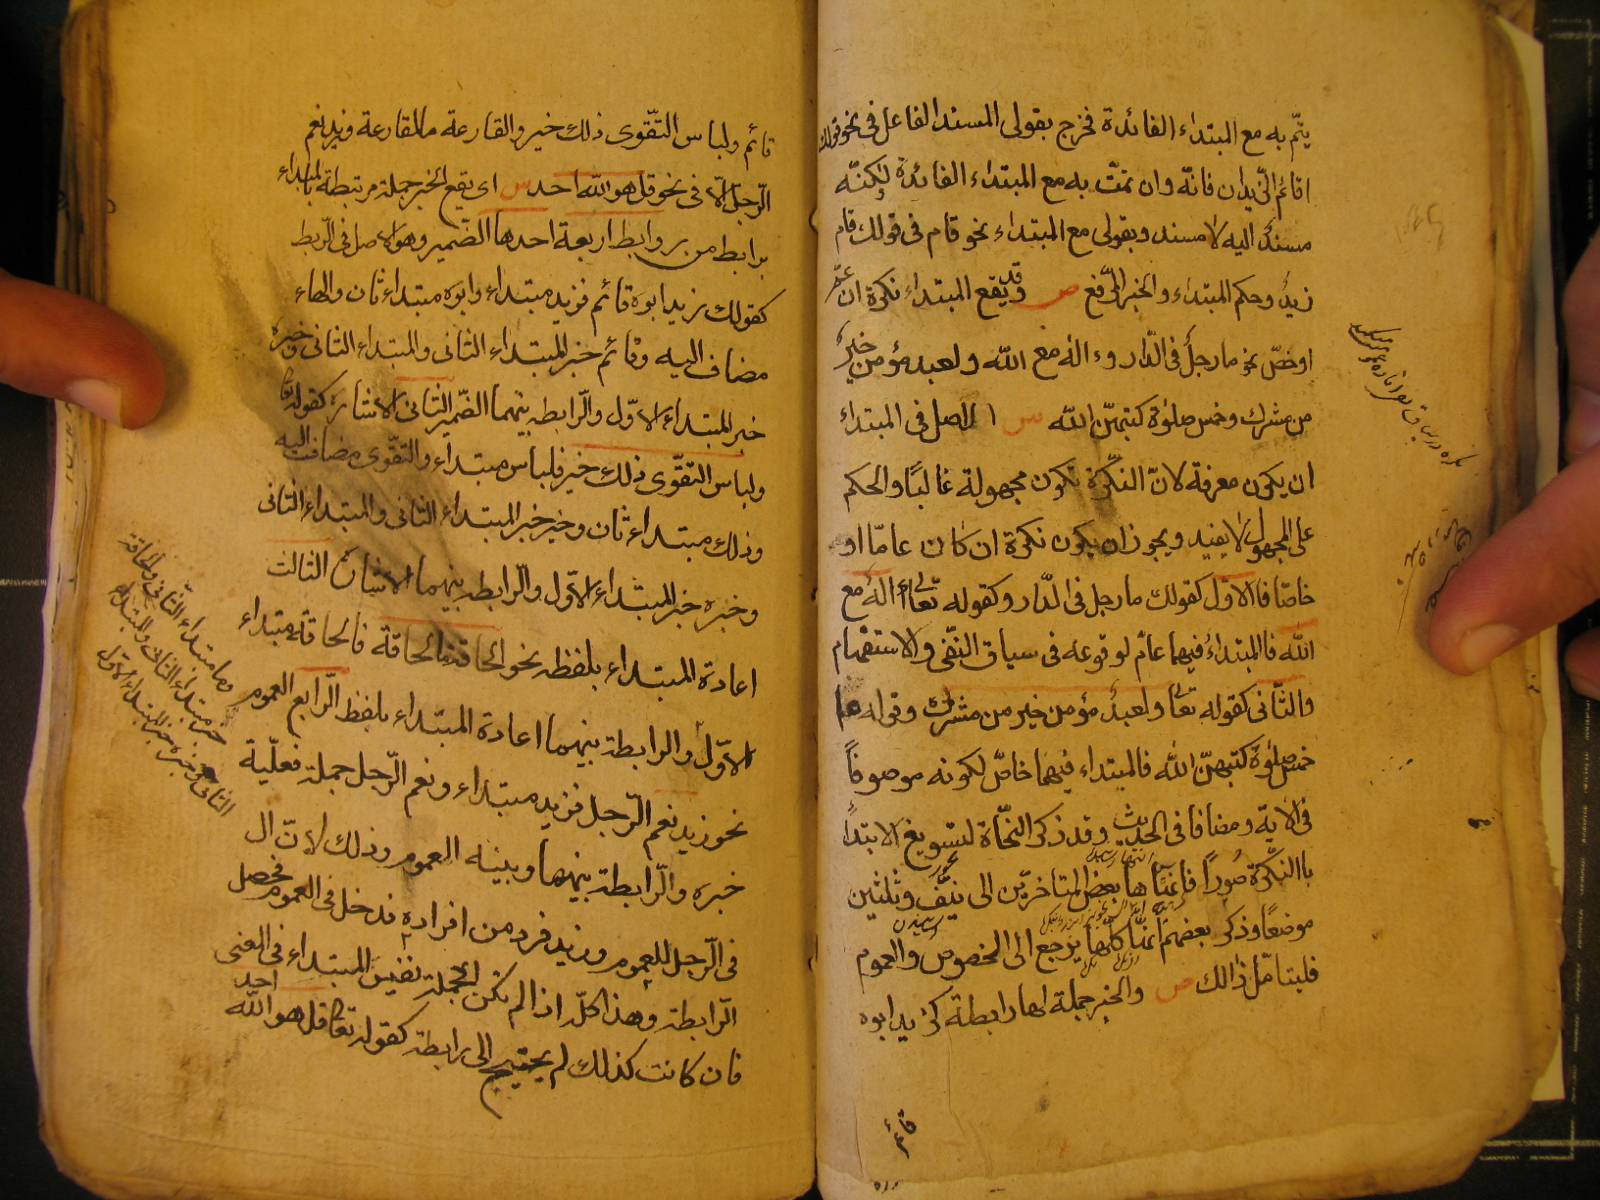 يتمّ به مع المبتداء الفائدة فخرج بقولى المسند الفاعل فى نحو قولك
اقائم الزّيدان فانّه وان تمّت به مع المبتداء الفائدة لكنّه
مسندٌ اليه لا مسند وبقولى مع المبتداء نحو قام فى قولك قام
زيدٌ وحكم المبتداء والخبر الرّفع ص وقد يقع المبتداء نكرة ان عمّ
او خصّ نحو ما رجلٌ فى الدّار وءاله مع الله ولعبد مؤمن خيرٌ
من مشرك وخمس صلوٰة كتبهنّ الله س الاصل فى المبتداء
ان يكون معرفة لانّ النكّرة تكون مجهولة غالبًا والحكم
على المجهول لا يفيد ويجوز ان يكون نكرة ان كان عامّا او
خاصّا فالاوّل كقولك ما رجل فى الدّار وكقوله تعالى أاله مع
الله فالمبتداءُ فيهما عامّ لوقوعه فى سياق النّفى والاستفهام
والثّانى كقوله تعالى ولعبدٌ مؤمن خير من مشرك وقوله
خمس صلوٰة كتبهنّ الله فالمبتداء فيهما خاصّ لكونه موصوفاً
فى الاية ومضافا فى الحديث وقد ذكر النحّاة لتسويغ الابتداً
باالنكّرة صُورًا فاعنها بعض المتاخرّين الى نيّف وثلثين
موضعًا وذكر بعضهم انّها كلها يرجع الى المخصوص والعموم
فليتامّل ذالك ص والخبر جملة لها رابطة كزيد ابوه
قائم
قائم ولباس التّقوى ذلك خير والقارعة ما القارعة وزيد نعم
الرّجل الّا فى نحو قل هو الله احد س اى يقع الخبر جملة مرتبطة بالمبتداء
برابط من روابط اربعة احدها الضّمير وهو الاصل فى الرّبط
كقولك زيد ابوه قائم فزيد مبتداء وابوه مبتداء ثان والهاء
مضاف اليه وقائم خبر المبتداء الثانى والمبتداء الثانى وخبره
خبر المبتداء الاوّل والرّابطه بينهما الضّمير الثّانى الاشارة كقوله تعالى
ولباس التقّوى ذلك خير فلباس مبتداء والتقّوى مضاف اليه
وذلك مبتداء ثان وخير خبر المبتداء الثانى والمبتداء الثانى
وخبره خبر المبتداء الاوّل والرّابطه بينهما الاشارة الثالث
اعادة المبتداء بلفظه نحو الحاقة ما الحاقة فالحاقة مبتداء
الاوّل والرابطة بينهما اعادة المبتداء بلفظ الرّابع العموم
نحو زيد نعم الرّجل فزيد مبتداء ونعم الرّجل جملة فعليّة
خبره والرّابطة بينهما وبينه العموم وذلك لانّ ال
فى الرّجل للعموم وزيد فرد من افراده فدخل فى العموم فحصل
الرّابطة وهذا كلّه اذا لم تكن الجملة نفس المبتداء فى المعنى
فان كانت كذلك لم يحتيج الى رابطة كقوله تعالى قل هو الله احد
وما مبتداء الثّانى والحاقة
خبر مبتداء الثّانى والمبتداء
الثانى وخبره خبر المبتداء الاوّل